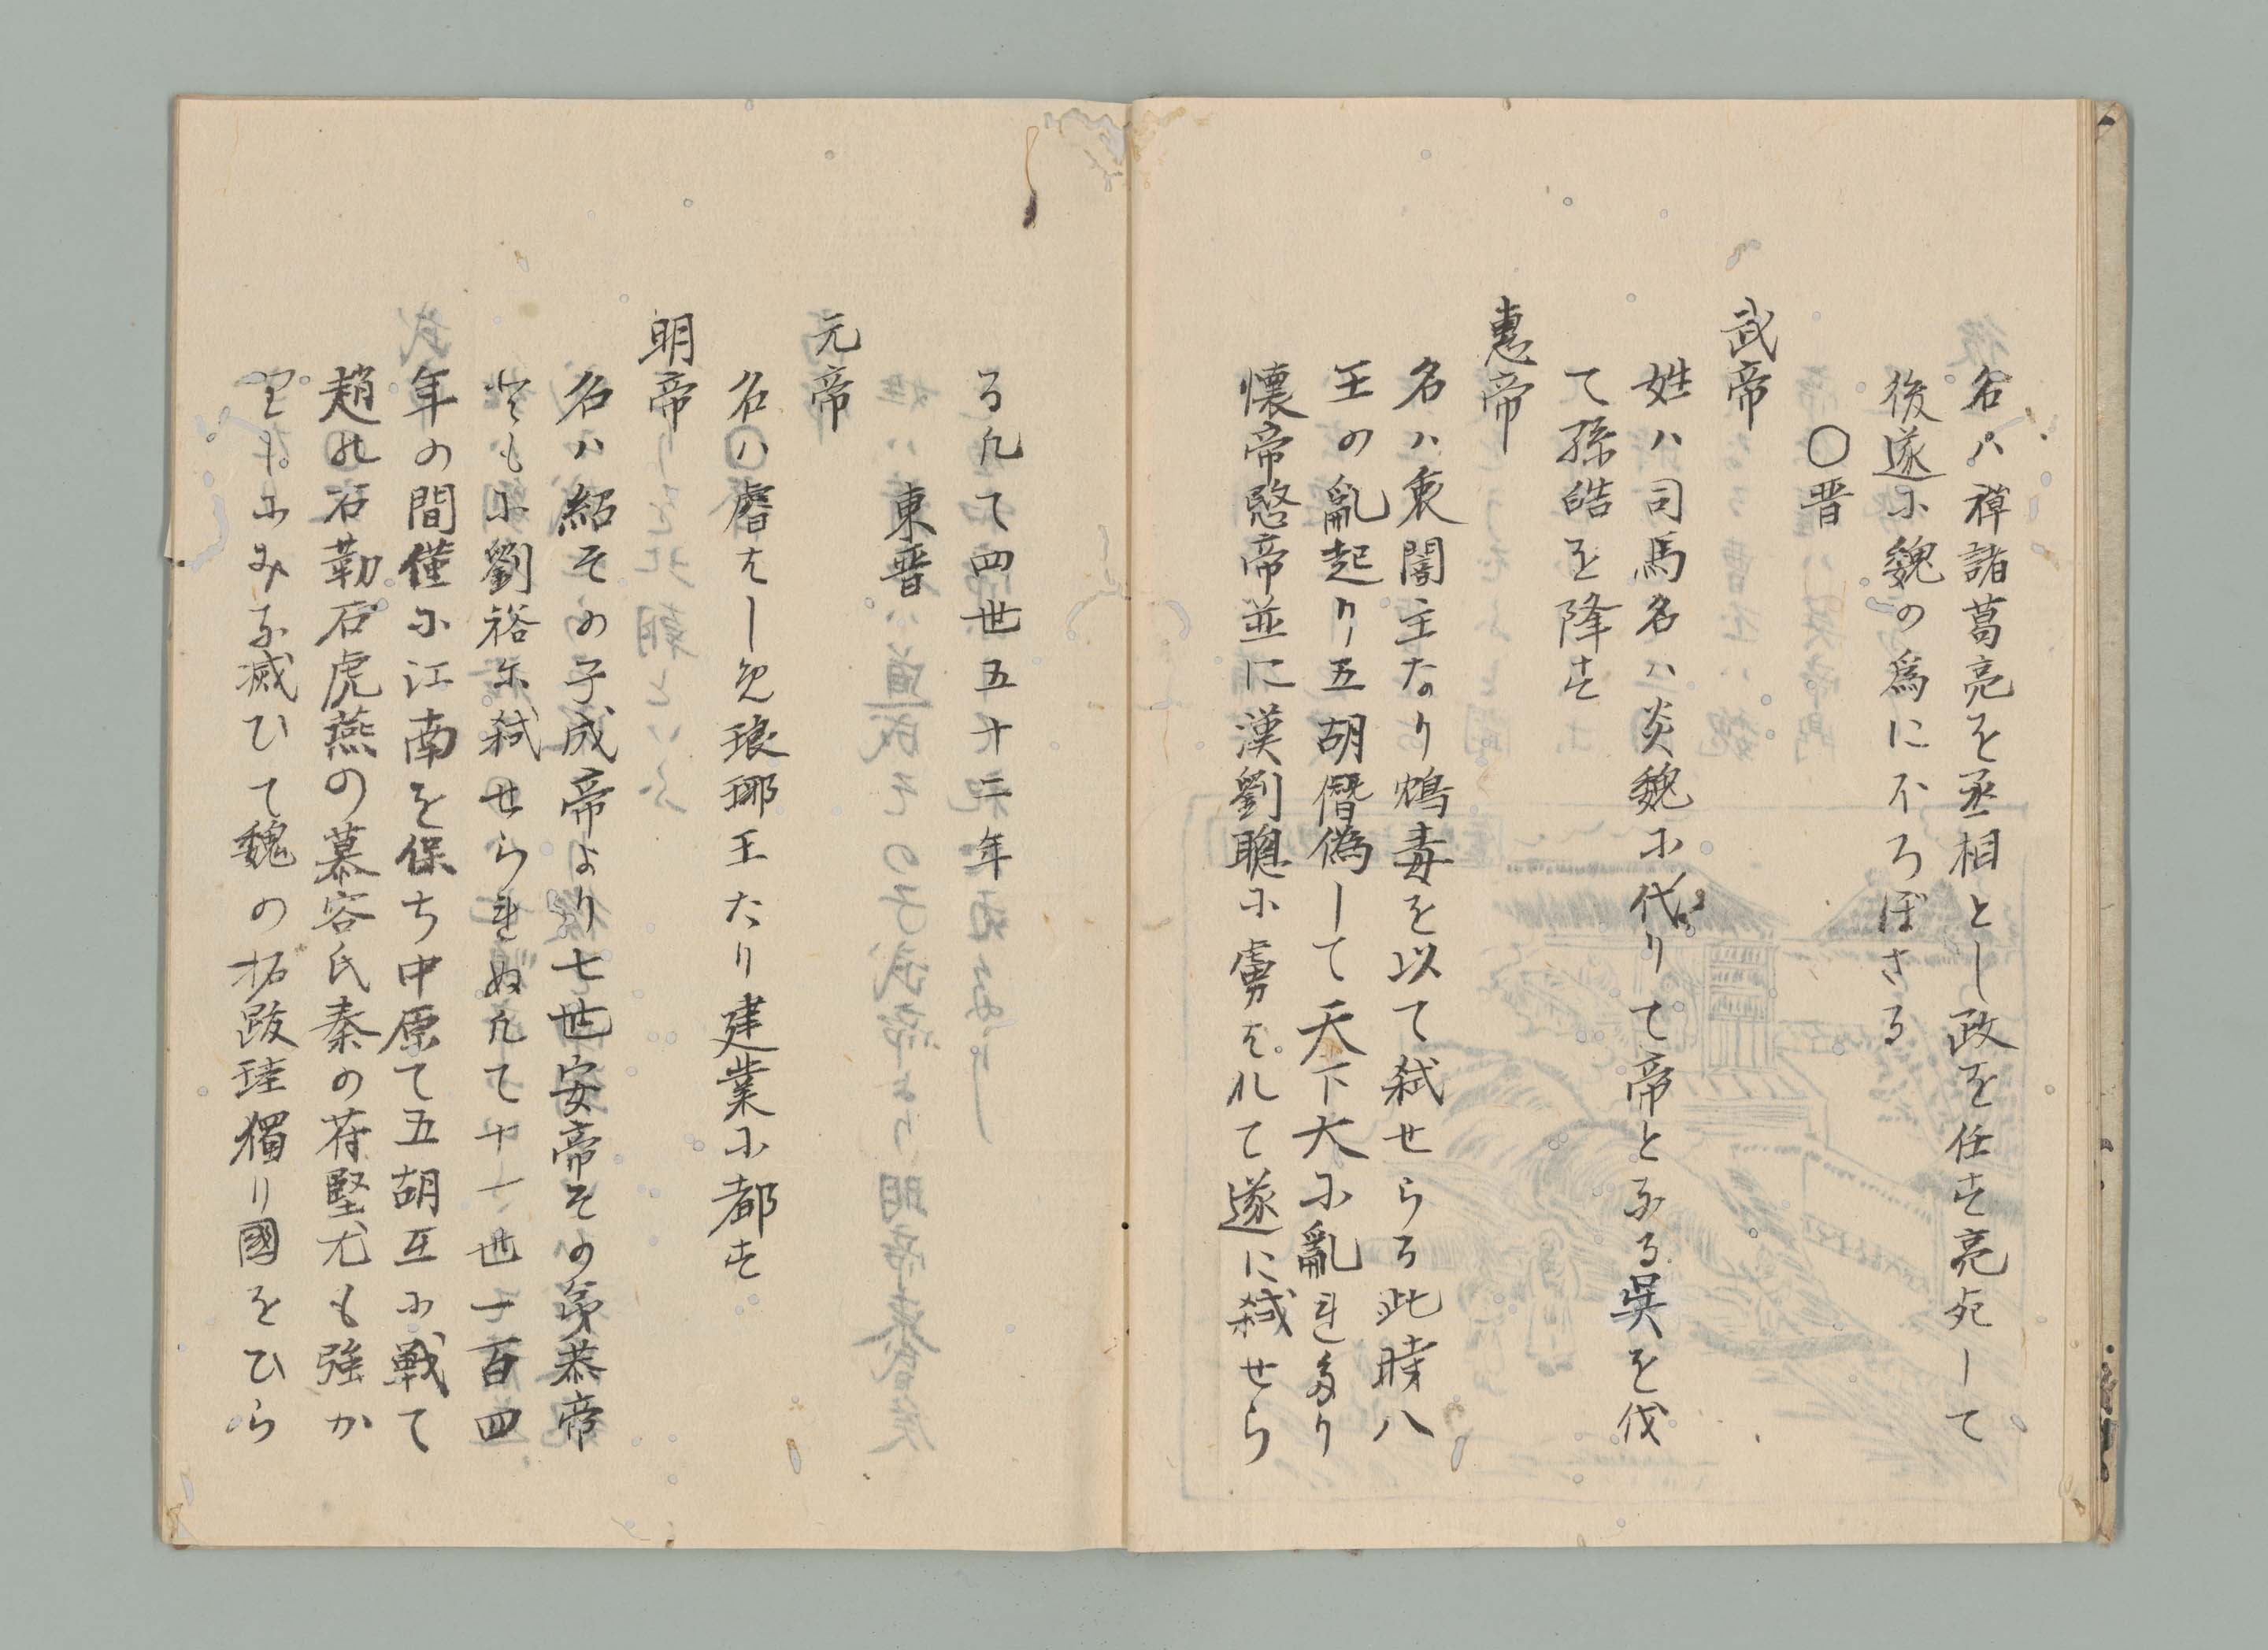 名ハ禅諸葛亮を丞相とし政を任す亮死して
後遂に魏の為にほろぼさる
〇晋
武帝
姓ハ司馬名ハ炎魏に代りて帝となる呉を伐
て孫皓を降す
恵帝
名ハ衷闇主なり鴆毒を以て弑せらる此時八
王の亂起り五胡僭偽して天下大に亂れたり
懐帝愍帝並に漢劉聰に虜はれて遂に弑せら
る凡て四世五十二年
東晋
元帝
名ハ睿はしめ瑯琊王たり建業に都す
明帝
名ハ紹その子成帝より七世安帝その弟恭帝
ともに劉裕に弑せられぬ凡て十一世一百四
年の間僅に江南を保ち中原て五胡互に戦て
趙の石勒石虎燕の慕容氏秦の苻堅尤も強か
りしにみな滅ひて魏の拓跋珪獨り國をひら